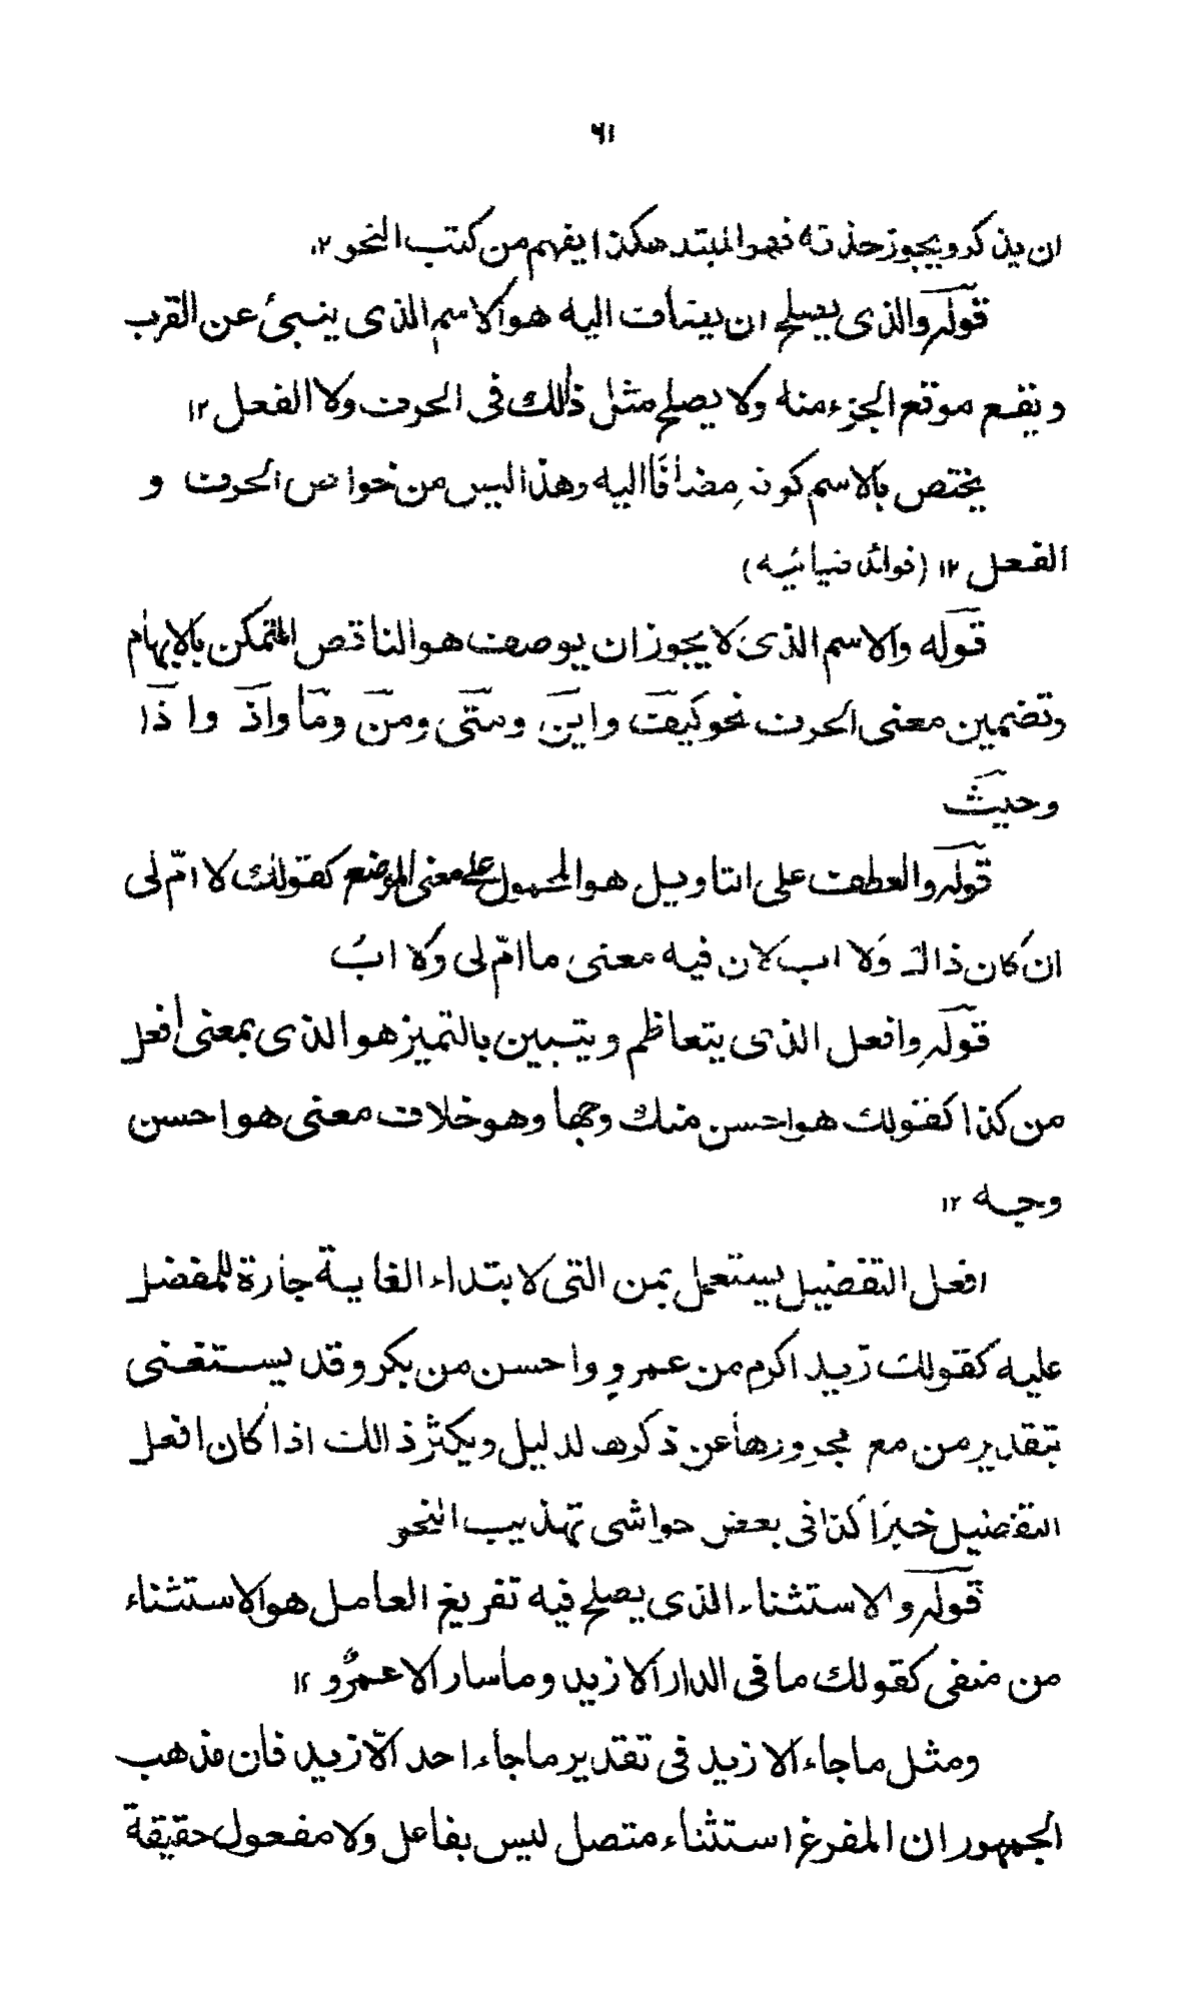 ٦١
ان يذكر ويجوز حذفه فهو المبتدا هكذا يفهم من كتب النحو ١٢
قوله والذى يصلح ان يضاف اليه هو الاسم الذى ينبئ عن القرب
ويقع موقع الجزء منه ولا يصلح مثل ذٰلك فى الحرف ولا الفعل ١٢
يختص بالاسم كونه مضافًا اليه وهذا ليس من خواص الحرف و
الفعل ١٢ (فوائد ضيائيه)
قوله والاسم الذى لا يجوز ان يوصف هو الناقص المتمكن بالابهام
وتضمين معنى الحرف نحو كيف واين ومتى ومن وما واذ واذا
وحيث
قوله والعطف على التاويل هو المحمول على معنى الموضع كقولك لا امّ لى
ان كان ذالك ولا اب لان فيه معنى ما امّ لى ولا ابٌ
قوله وافعل الذى يتعاظم ويتبين بالتميز هو الذى بمعنى افعل
من كذا كقولك هو احسن منك وجها وهو خلاف معنى هو احسن
وجه ١٢
افعل التفضيل يستعمل بمن التى لابتداء الغاية جارة للمفضل
عليه كقولك زيد اكرم من عمرو واحسن من بكر وقد يستغنى
بتقدير من مع مجرورها عن ذكرها لدليل ويكثر ذالك اذا كان افعل
التفضيل خبرًا كذا فى بعض حواشى تهذيب النحو
قوله والاستثناء الذى يصلح فيه تفريغ العامل هو الاستثناء
من منفى كقولك ما فى الدار الا زيد وما سار الا عمرٌو ١٢
ومثل ما جاء الا زيد فى تقدير ما جاء احد الّا زيد فان مذهب
الجمهور ان المفرغ استثناء متصل ليس بفاعل ولا مفعول حقيقة